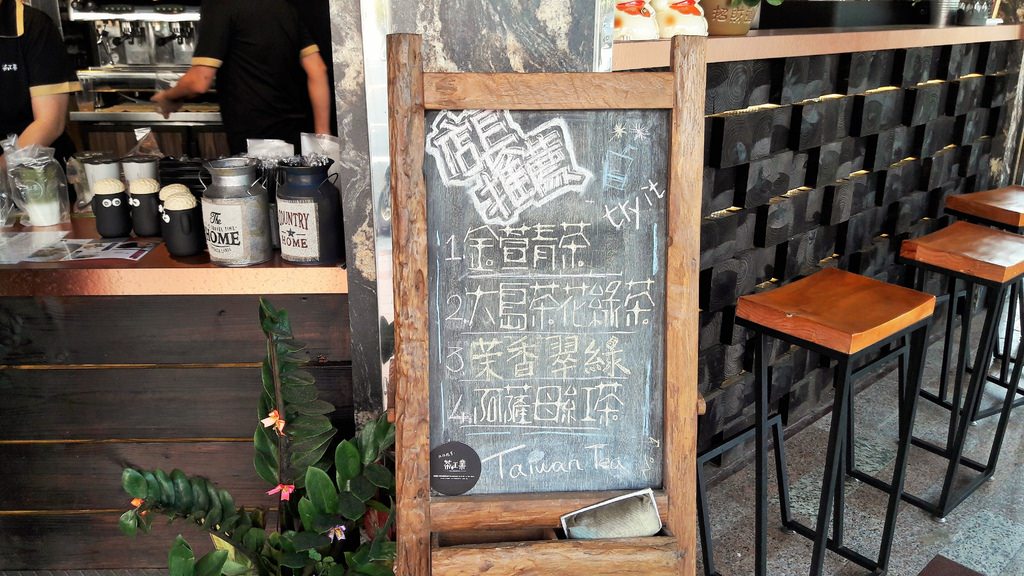 店長
推薦
try it
1. 金萱青茶
2. 大島茶花綠茶
3 茉香翠綠
4. 阿薩姆紅茶
Taiwan Tea
The
HOME
COUNTRY
HOME